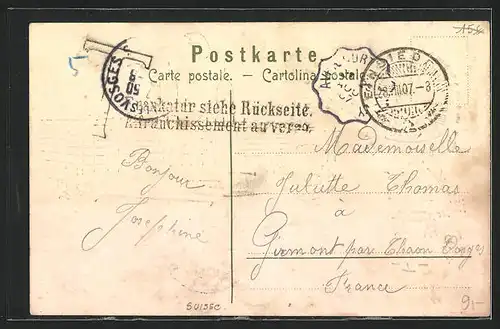 15.-
5
T
Postkarte.
Carte postale. – Cartolina postale.
VOSGES
Frankatur siehe Rückseite.
Affranchissement au verso.
Mademoiselle
Juliette Thomas
à
Girmont par Thaon Vosges
France
Bonjour
Joséphine
SUISSE
9.-